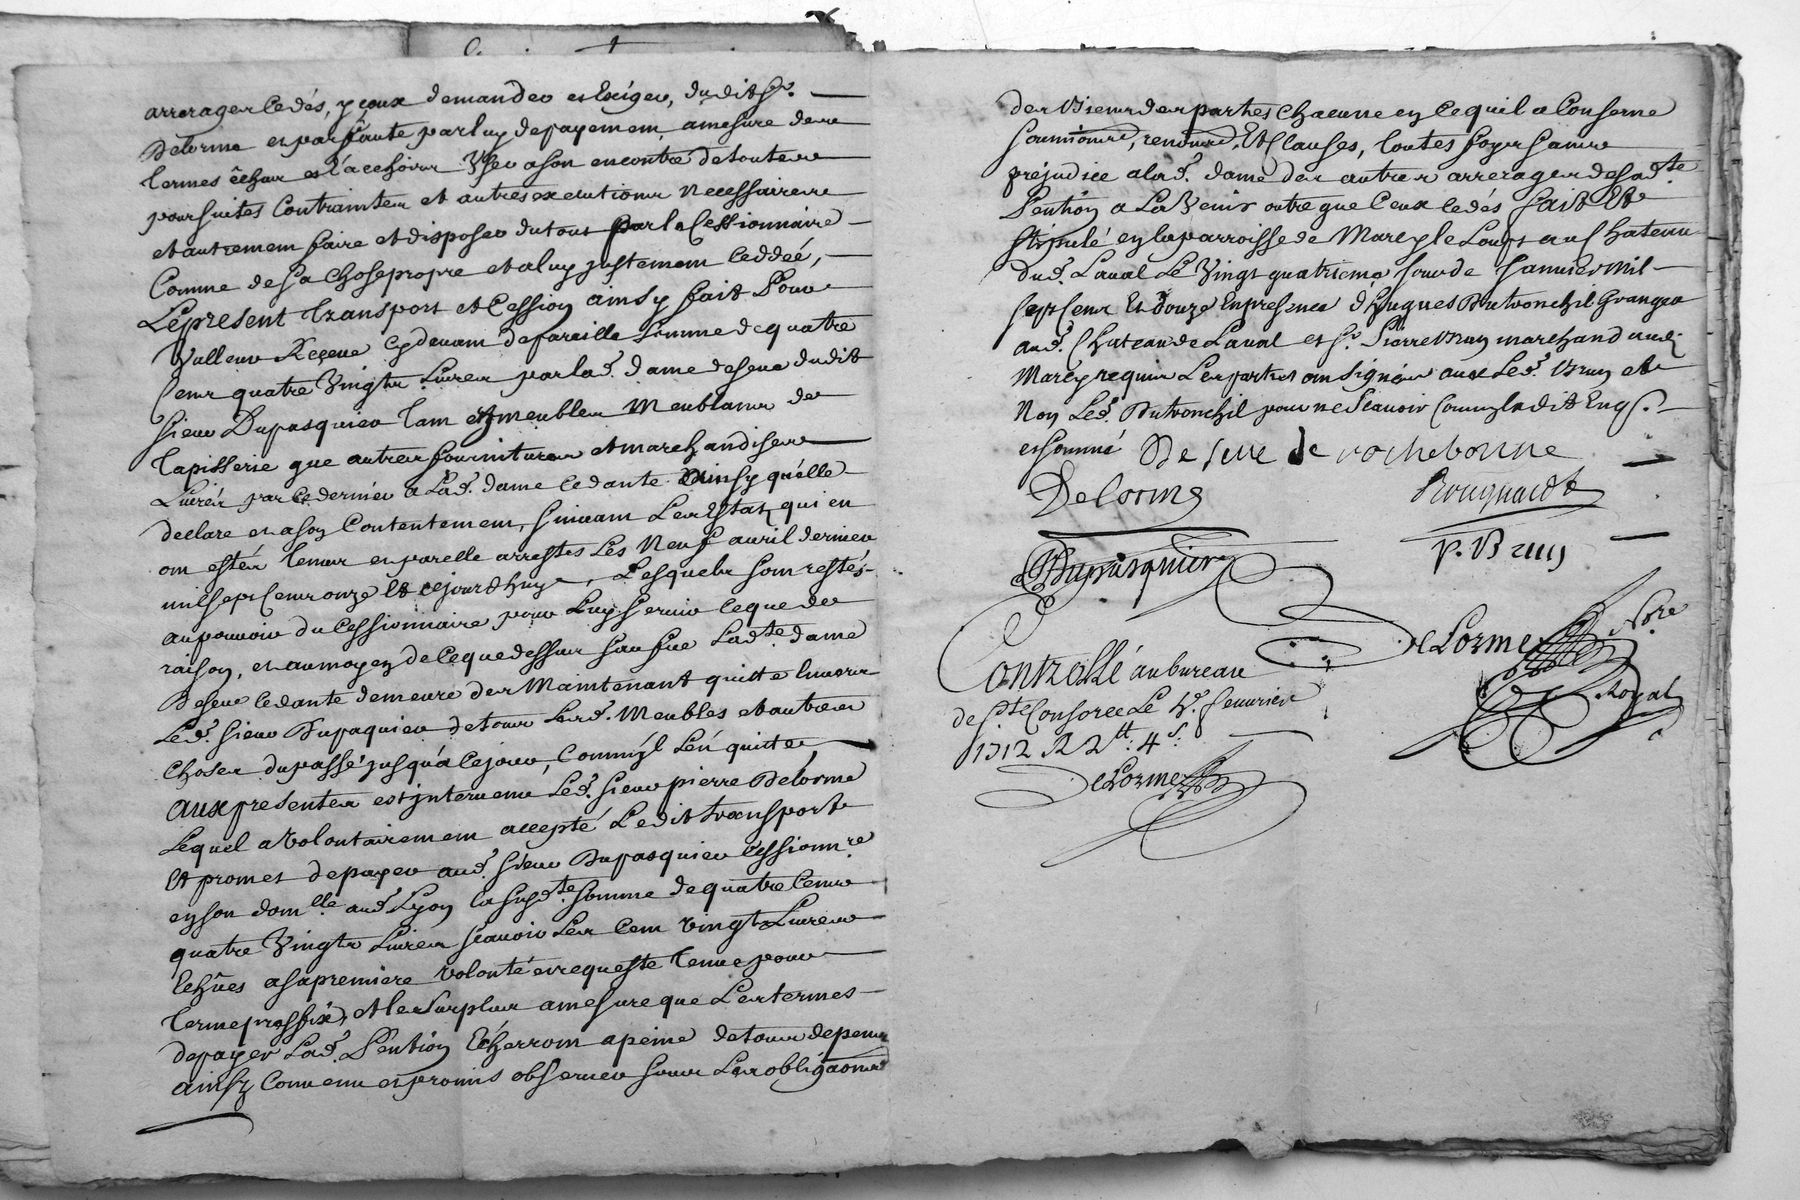 arrerages cedés, y ceux demander et Exiger, dudit Sr.
Delorme et par faute par luy de payement amesure des
termes êchus et à eschoirs User a son encontre de toutes
poursuites Contraintes et autres executions necessaires
et autrement faire et disposer du tout par le Cessionnaire
Comme de sa chose propre et a luy justement ceddeé,
Le present transport et Cession ainsy fait Pour
Valleur Receue cy devant de pareille somme de quatre
Cent quatre Vingts Livres par lad. dame de seve dudit
sieur Dupasquier tant en meubles Meublants de
tapisserie que autres fournitures et marchandises
Livrés par ce dernier a Lad. dame cedante Ainsy quelle
declare et a son Contentement, suivant Les Estats qui en
ont estés tenus et par elle arrestés Les Neuf avril dernier
mil sept Cent onze Et cejourdhuy, Lesquels sont restés
au pouvoir du Cessionnaire pour Luy servir ce que de
raison, et au moyen de ce que dessus Ladte. dame
Deseve cedante demeure des Maintenant quitte envers
Led. sieur Dupaquier de tous Lesd. Meubles et autres
choses du passé jusqu'à ce jour, Comm'yl L'en quitte,
Aux presentes est intervenu Led. sieur pierre Delorme
Lequel a volontairement accepté Ledit transport
Et promet de payer aud. sieur Dupasquier Cessionnre
en son domlle aud. Lyon la susdte. somme de quatre Cent
quatre Vingts Livres scavoir Les Cent vingt Livres
echûes a sa premiere volonté et requeste tenue pour
terme prefix, et le surplus amesure que Les termes
de payer Lad. Pention Echerront a peine de tous depens
ainsy Convenu et promis observer sous Les obligaons
des biens des parties chacune en ce quil a Conserne
soumions, renons, Et Clauses, toutes foys sans
prejudice a lad. dame des autres arrerages de sadte
Pention a La Venir outre que Ceux cedés fait Et
stipulé en la parroisse de Marcy le Loup au Chateau
dud. Laval Le Vingt quatrieme jour de Janvier mil
sept Cent Et douze En presence d'hugues Dutronchil Granger
aud. Chateau de Laval et Sr. Pierre Brun marchand aud.
Marcy requis Les parties ont signées avec Led. Brun et
Non Led. Dutronchil pour ne Scavoir Comm'yl a dit Enqs.
et sommé De seve de rochebonne
Delorme Rougnard
Dupasquier P. Brun
DeLorme Nore
Royal
Controllé au bureau
de Ste Consorce Le fevrier
1712 R 2tt. 4s.
DeLorme